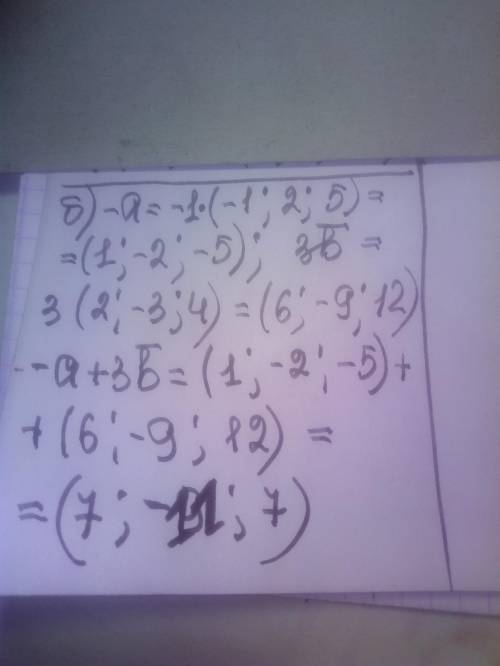 б) -a = -1·(-1; 2; 5) =
= (1; -2; -5); 3b̅ =
3 (2; -3; 4) = (6; -9; 12)
--a + 3b̅ = (1; -2; -5) +
+ (6; -9; 12) =
= (7; -11; 7)